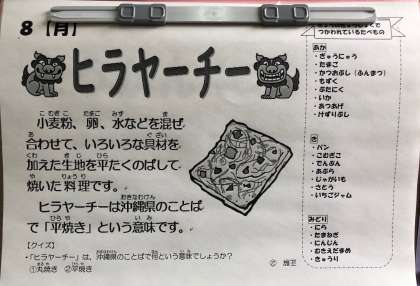 8【月】
ヒラヤーチー
小麦粉、卵、水などを混ぜ
合わせて、いろいろな具材を
加えた生地を平たくのばして
焼いた料理です。
ヒラヤーチーは沖縄県のことば
で「平焼き」という意味です。
【クイズ】
・「ヒラヤーチー」は、沖縄県のことばで何という意味でしょうか？
①丸焼き ②平焼き
つかわれているたべもの
あか
・ぎゅうにゅう
・たまご
・かつおぶし（ふんまつ）
・もずく
・ぶたにく
・いか
・あつあげ
・だいず
き
・パン
・こむぎこ
・でんぷん
・あぶら
・じゃがいも
・さとう
・いちごジャム
みどり
・にら
・たまねぎ
・にんじん
・むきえだまめ
・きゅうり